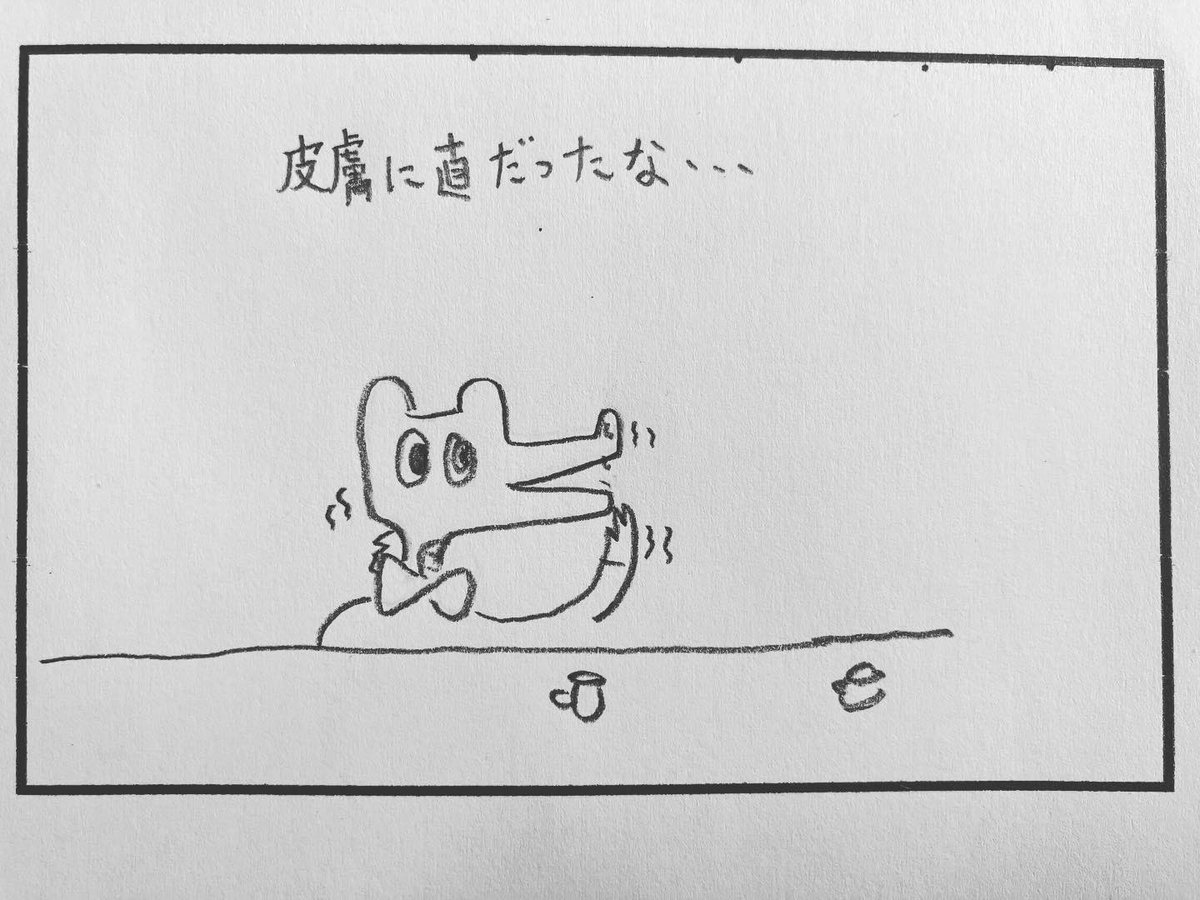 皮膚に直だったな、、、